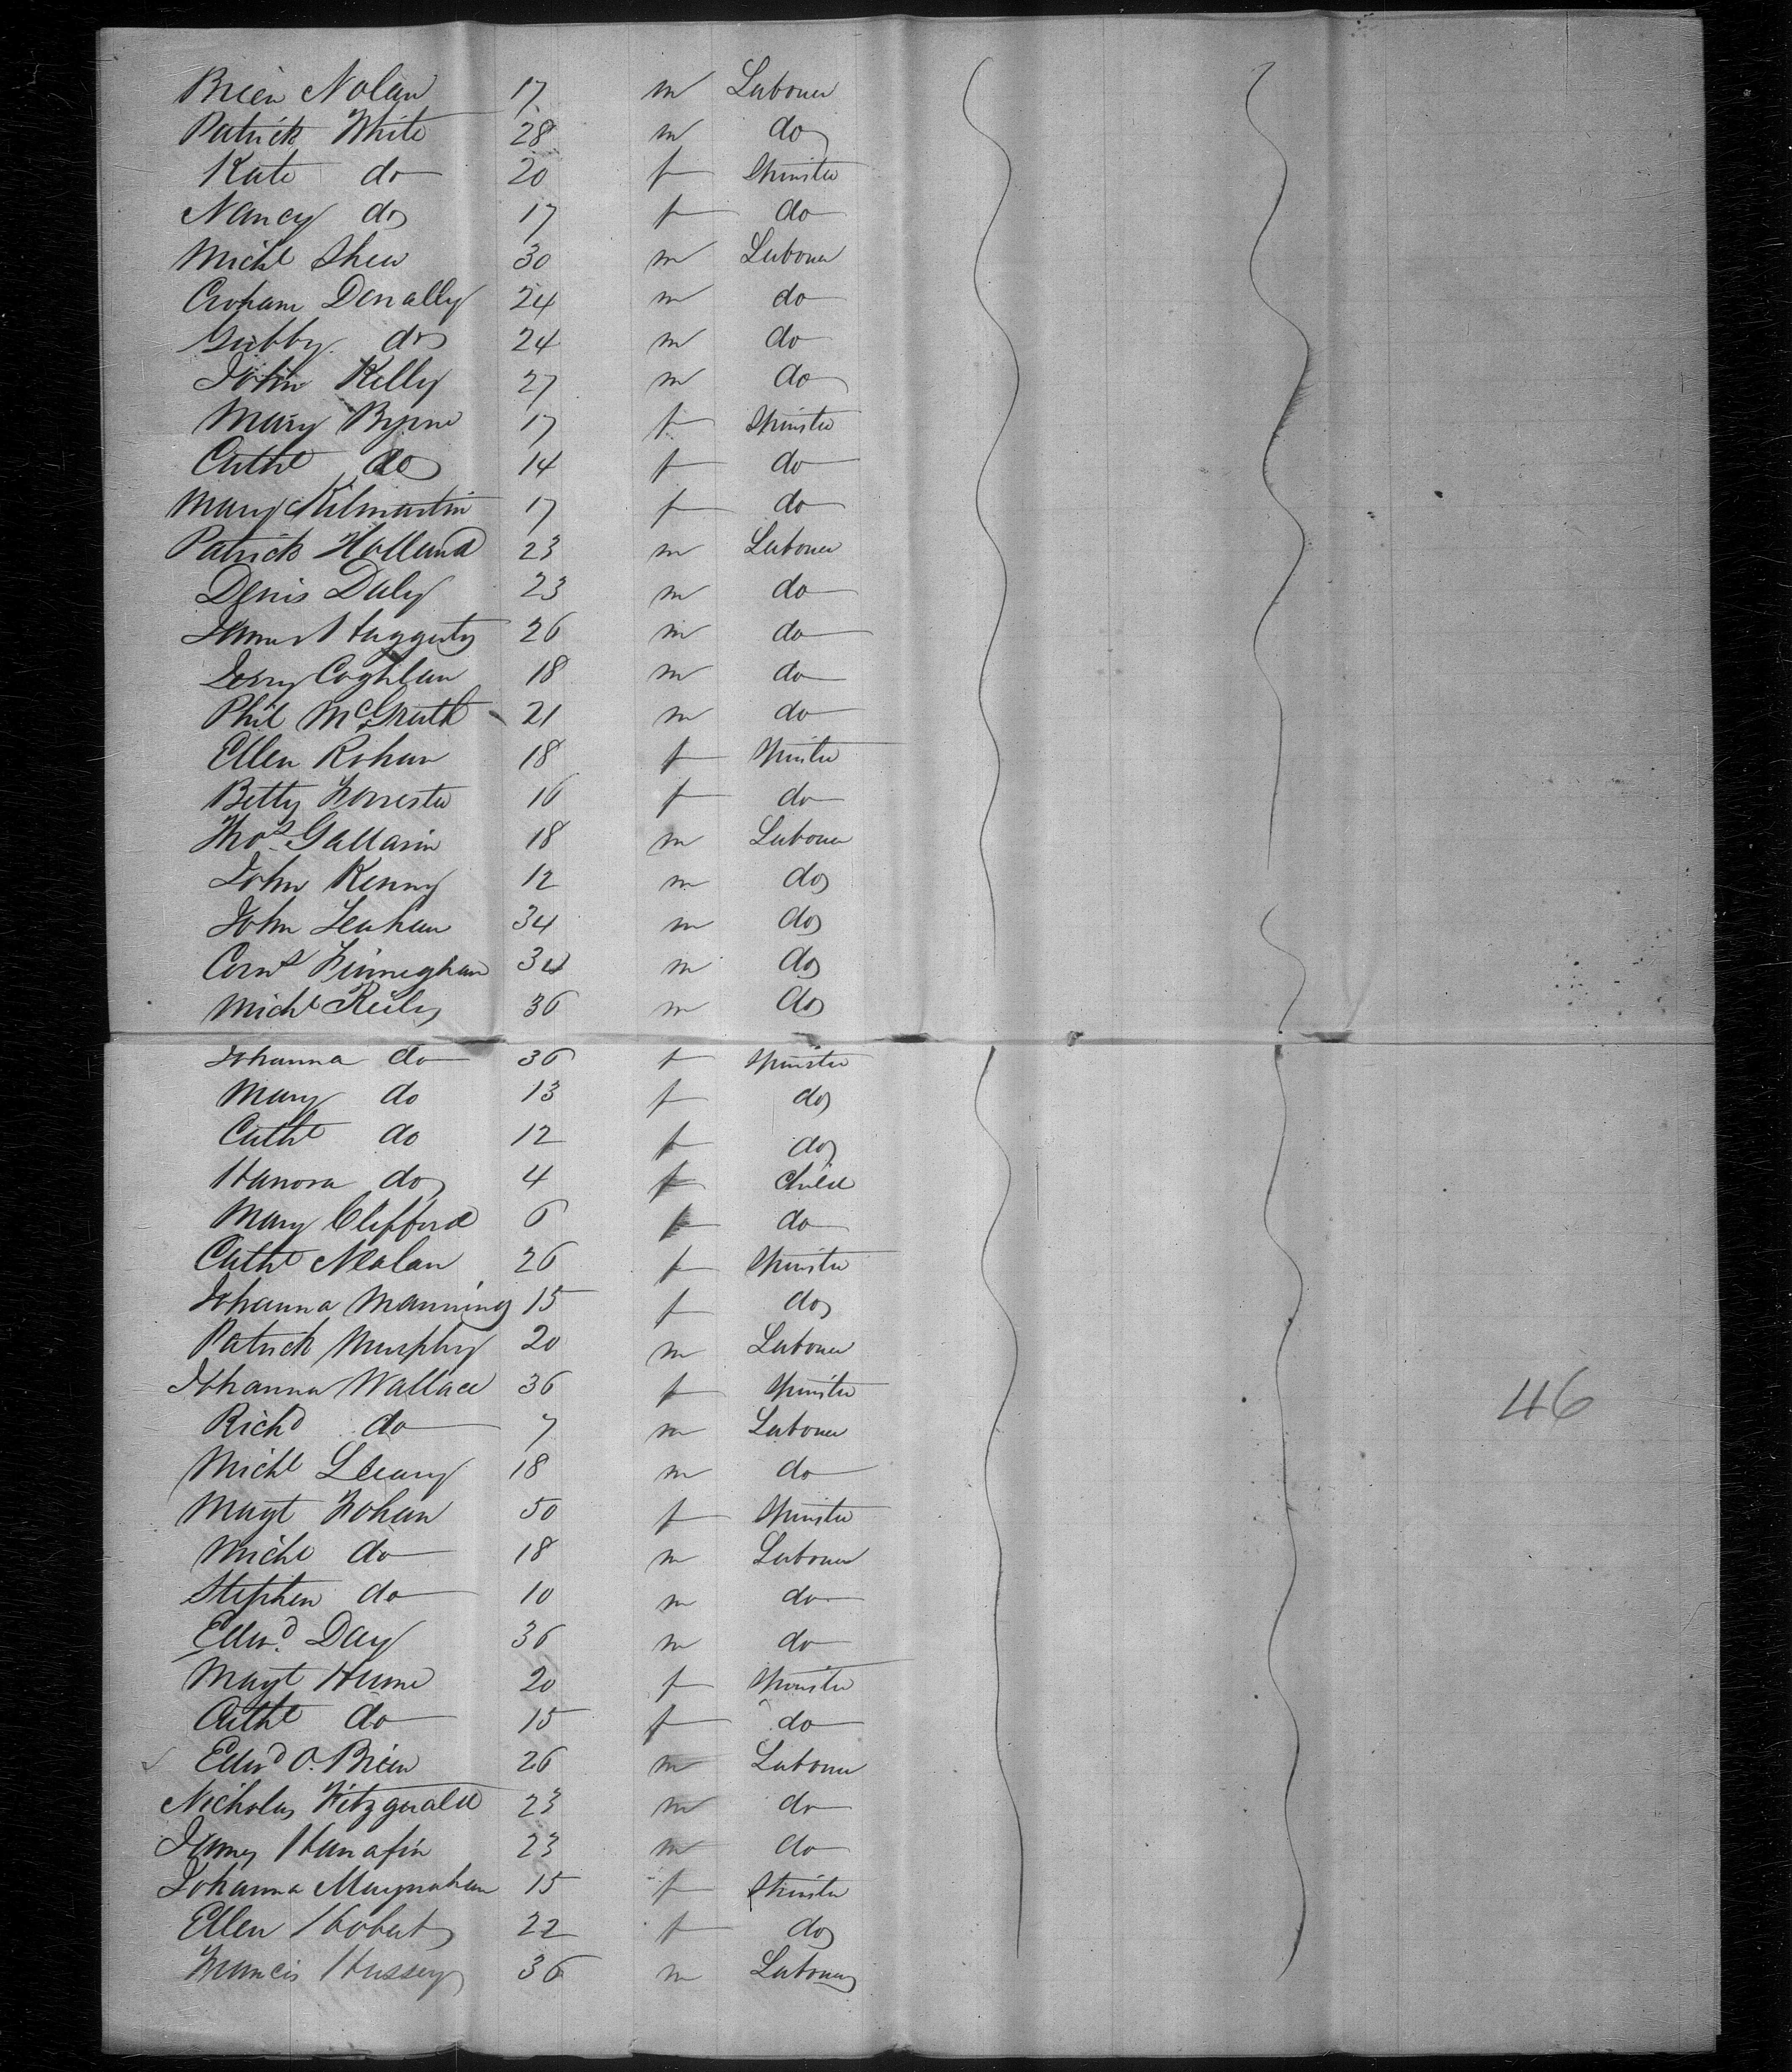 Brien Nolan 17 m Labourer
Patrick White 28 m do
Kate do 20 f Spinster
Nancy do 17 f do
Michl Shea 30 m Labourer
Donally 24 m do
do 24 m do
John Kelly 27 m do
Mary Byrne 17 f Spinster
Cathe do 14 f do
Mary Kilmartin 17 f do
Patrick Holland 23 m Labourer
Denis Daly 23 m do
James Haggerty 26 m do
Jerry Coghlan 18 m do
Phil McGrath 21 m do
Ellen Rohan 18 f Spinster
Betty Forrester 16 f do
Thos Gallavin 18 m Labourer
John Kenny 12 m do
John Leahan 34 m do
Corns Finneghan 34 m do
Michl Reily 36 m do
Johanna do 36 f Spinster
Mary do 13 f do
Cathe do 12 f do
Hanora do 4 f Child
Mary Clifford 6 f do
Cathe Nealan 26 f Spinster
Johanna Manning 15 f do
Patrick Murphy 20 m Labourer
Johanna Wallace 36 f Spinster
Richd do 7 m Labourer
Michl Leary 18 m do
46
Magt Fohan 50 f Spinster
Michl do 18 m Labourer
Stephen do 10 m do
Edwd Day 36 m do
Magt Hume 20 f Spinster
Cathe do 15 f do
Edwd O.Brien 26 m Labourer
Nicholas Fitzgerald 23 m do
James Hanafin 23 m do
Johanna Maynahan 15 f Spinster
Ellen Hobert 22 f do
Francis Hussey 36 m Labourer